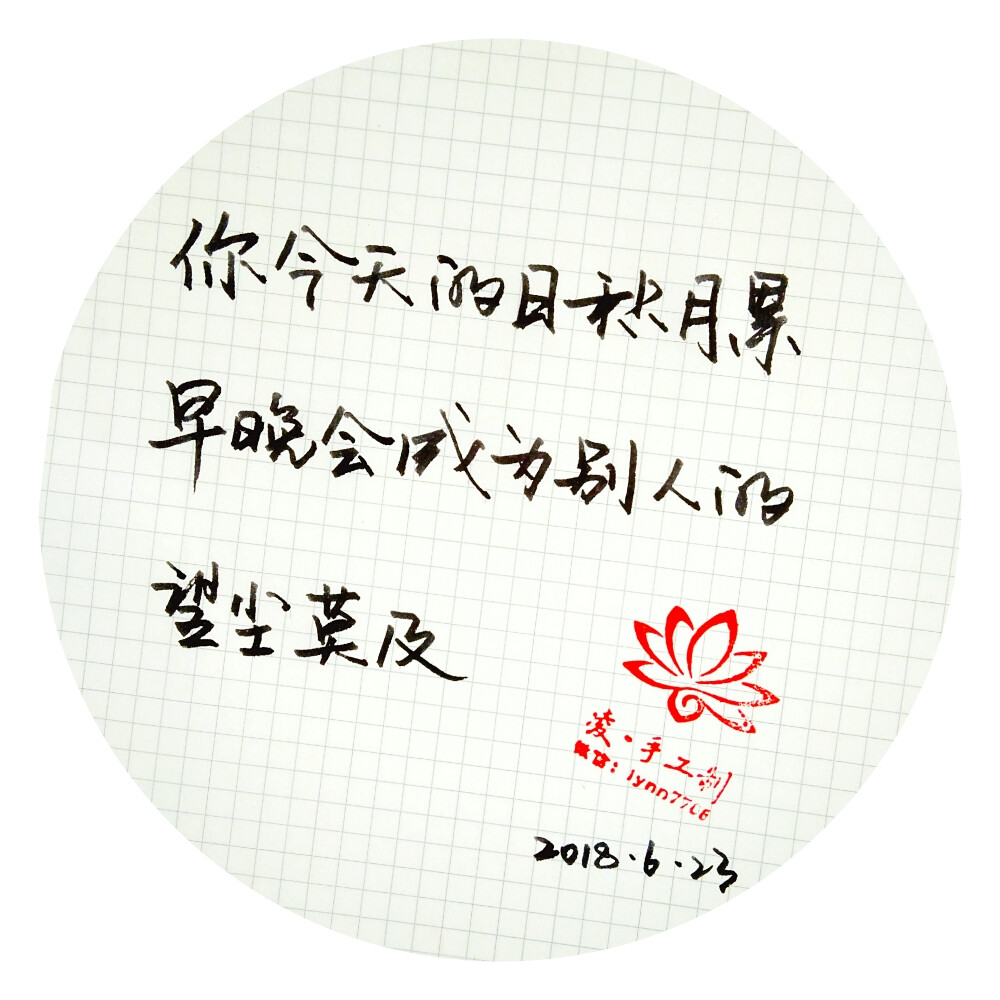 你今天的日秋月累
早晚会成为别人的
望尘莫及
凌·手工制
微信:lynn7706
2018.6.23